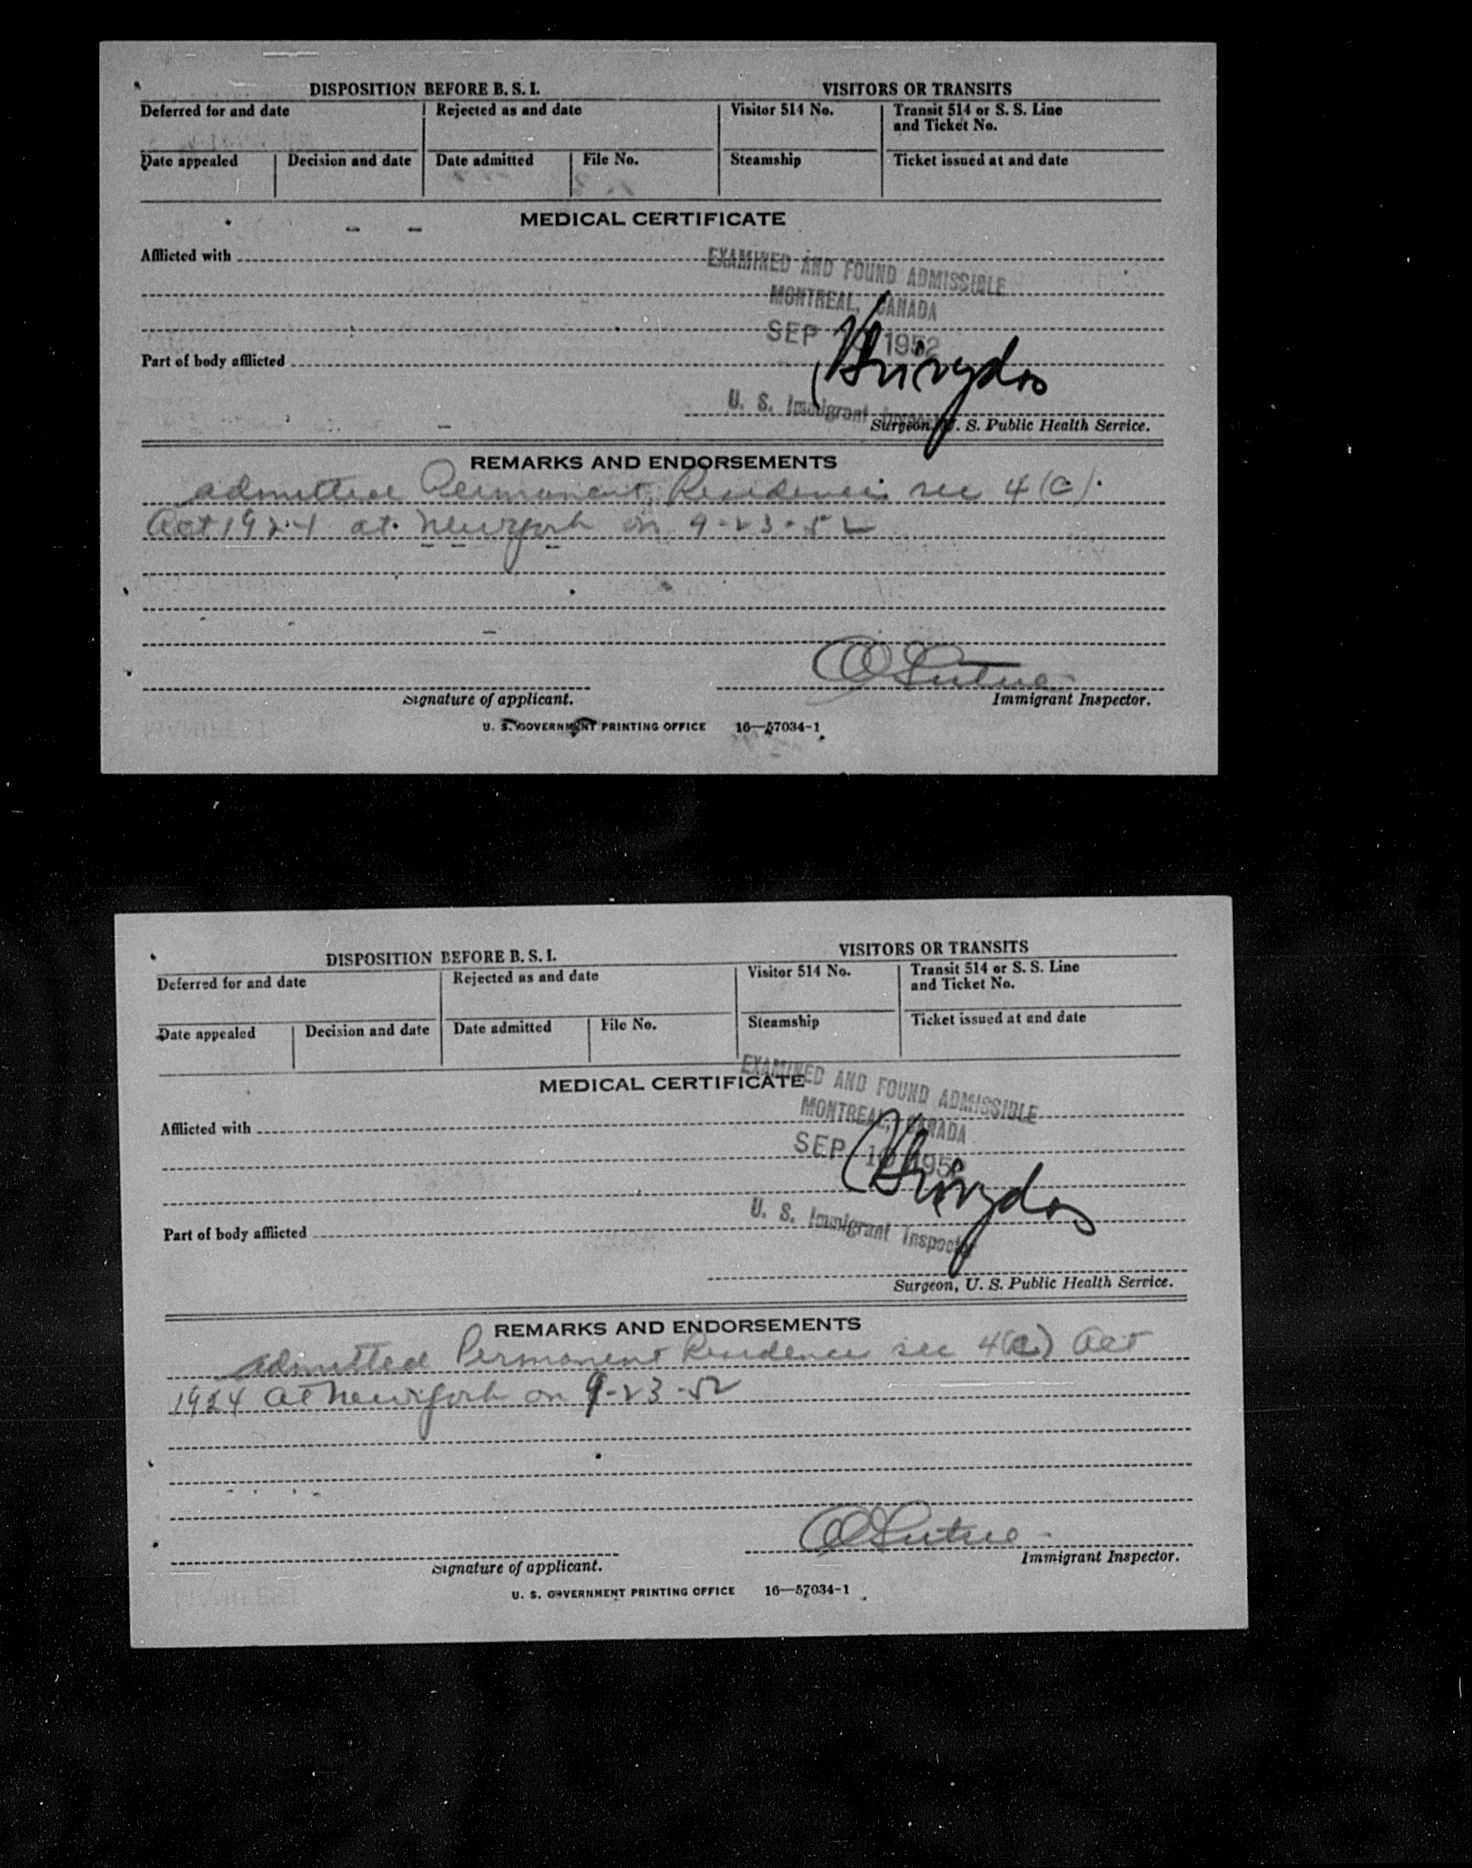 DISPOSITION BEFORE B. S. I. VISITORS OR TRANSITS
Deferred for and date Rejected as and date Visitor 514 No. Transit 514 or S. S. Line
and Ticket No.
Date appealed Decision and date Date admitted File No. Steamship Ticket issued at and date
MEDICAL CERTIFICATE
Afflicted with
EXAMINED AND FOUND ADMISSIBLE
MONTREAL, CANADA
SEP 1952
Part of body afflicted
U. S. Immigrant
Surgeon, U. S. Public Health Service.
REMARKS AND ENDORSEMENTS
admitted Permanent Residence sec 4(c).
Act 1924 at New york on 9-23-52
Signature of applicant. Immigrant Inspector.
U. S. GOVERNMENT PRINTING OFFICE 16—57034-1
DISPOSITION BEFORE B. S. I. VISITORS OR TRANSITS
Deferred for and date Rejected as and date Visitor 514 No. Transit 514 or S. S. Line
and Ticket No.
Date appealed Decision and date Date admitted File No. Steamship Ticket issued at and date
EXAMINED AND FOUND ADMISSIBLE
MEDICAL CERTIFICATE
MONTREAL, CANADA
Afflicted with
SEP 1952
U. S. Immigrant Inspector
Part of body afflicted
Surgeon, U. S. Public Health Service.
REMARKS AND ENDORSEMENTS
admitted Permanent Residence sec 4(c) Act
1924 at New york on 9-23-52
Signature of applicant. Immigrant Inspector.
U. S. GOVERNMENT PRINTING OFFICE 16—57034-1